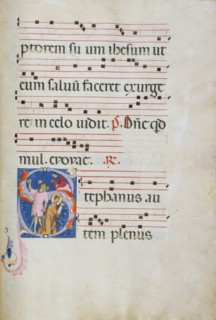 ptorem su um ihesum ut
eum saluū faceret exurge
re in celo uidit. p. Dñe qd
mul. crorac. R.
Stephanus au
tem plenus